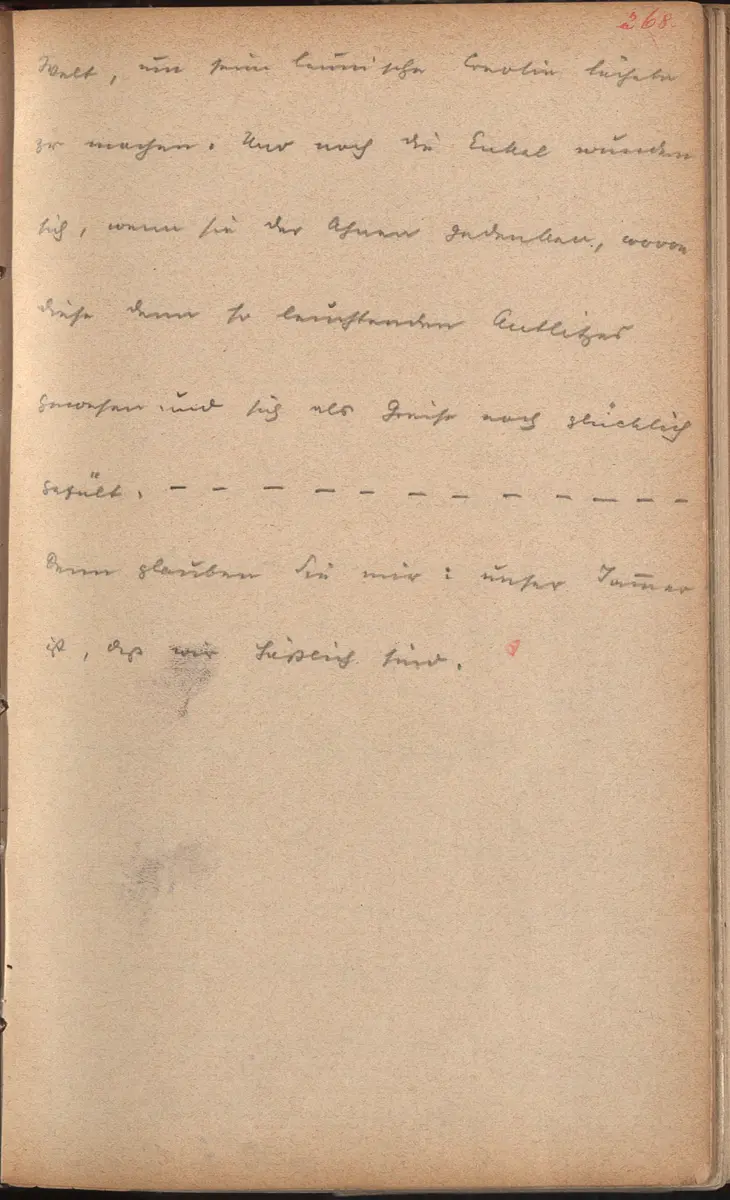 268.
Welt, um seine launische Creolin lächeln
zu machen. Und noch die Enkel wundern
sich, wenn sie der Ahnen gedenken, wovon
diese denn so leuchtenden Antlitzes
gewesen und sich als Greise noch glücklich
gefült. – – – – – – – – – – – –
Denn glauben Sie mir: unser Jam̅er
ist, daß wir häßlich sind.